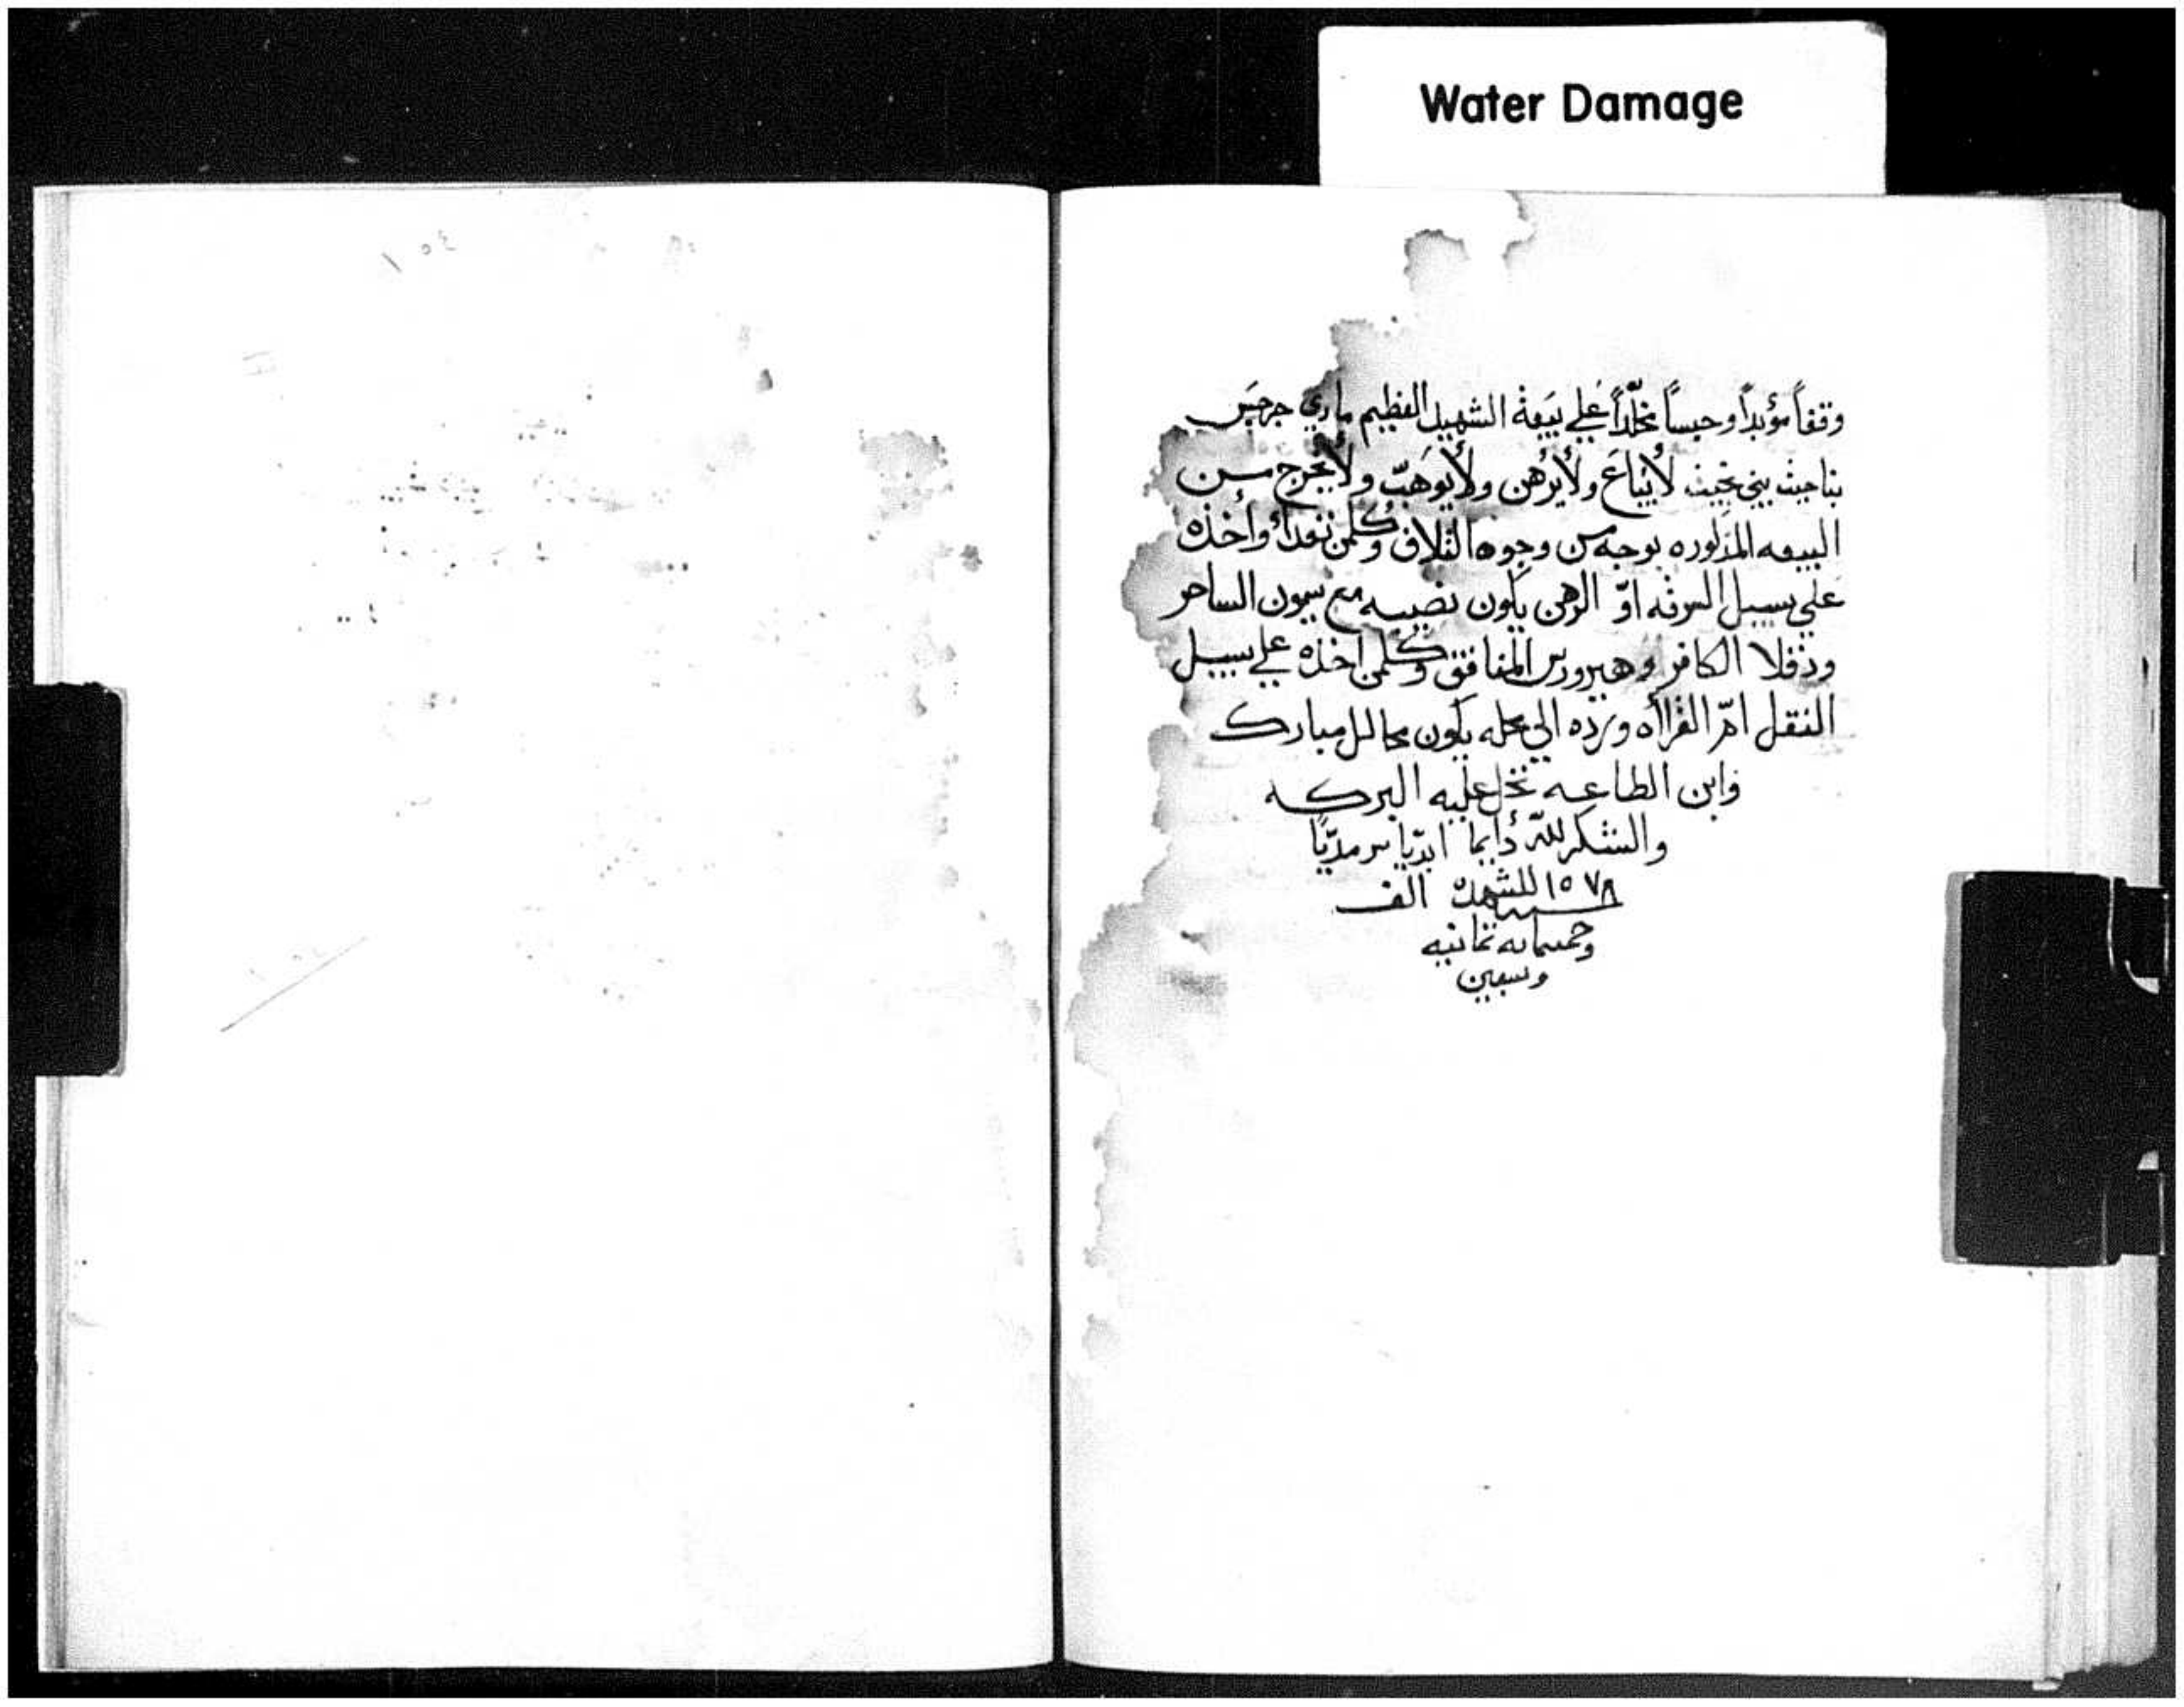 Water Damage
وقفاً مؤبداً وحبساً مخلّداً علي بيعة الشهيد العظيم ماري جرجس
بناحيت بني بخيت لايباع ولايرهن ولايوهب ولايخرج من
البيعه المذكوره بوجه من وجوه التلاف وكلمن تعدا واخذه
علي سبيل السرقه او الرهن يكون نصيبه مع سيمون الساحر
ودقلا الكافر وهيرودس المنافق وكلمن اخذه علي سبيل
النقل ام القرااه ورده الي محله يكون محالل مبارك
وابن الطاعه تحل عليه البركه
والشكر لله دايما ابديا سرمديا
١٥٧٨ للشهدا الف
وخمسمايه ثمانيه
وسبعين